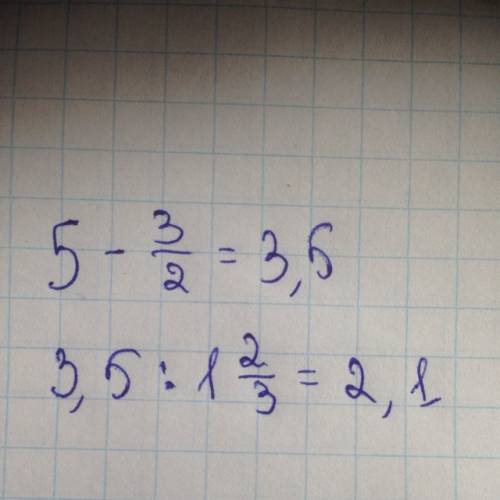 5 - 3/2 = 3,5
3,5 : 1 2/3 = 2,1